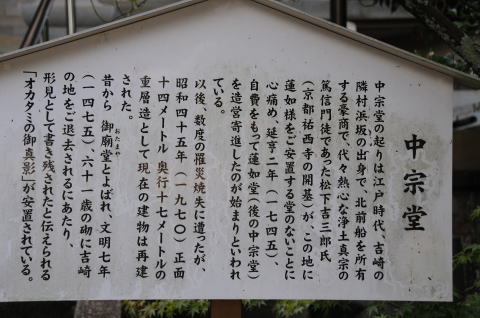 中宗堂
中宗堂の起りは江戸時代、吉崎の
隣村浜坂の出身で、北前船を所有
する豪商で、代々熱心な浄土真宗の
篤信門徒であった松下吉三郎氏
（京都祐西寺の開基）が、この地に
蓮如様をご安置する堂のないことに
心痛め、延享二年（一七四五）、
自費をもって蓮如堂（後の中宗堂）
を造営寄進したのが始まりといわれ
ている。
以後、数度の罹災焼失に遭ったが、
昭和四十五年（一九七〇）正面
十四メートル 奥行十七メートルの
重層造として現在の建物は再建
された。
昔から 御廟堂とよばれ、文明七年
おたまや
（一四七五）、六十一歳の砌に吉崎
の地をご退去されるにあたり、
形見として書き残されたと伝えられる
「オカタミの御真影」が安置されている。